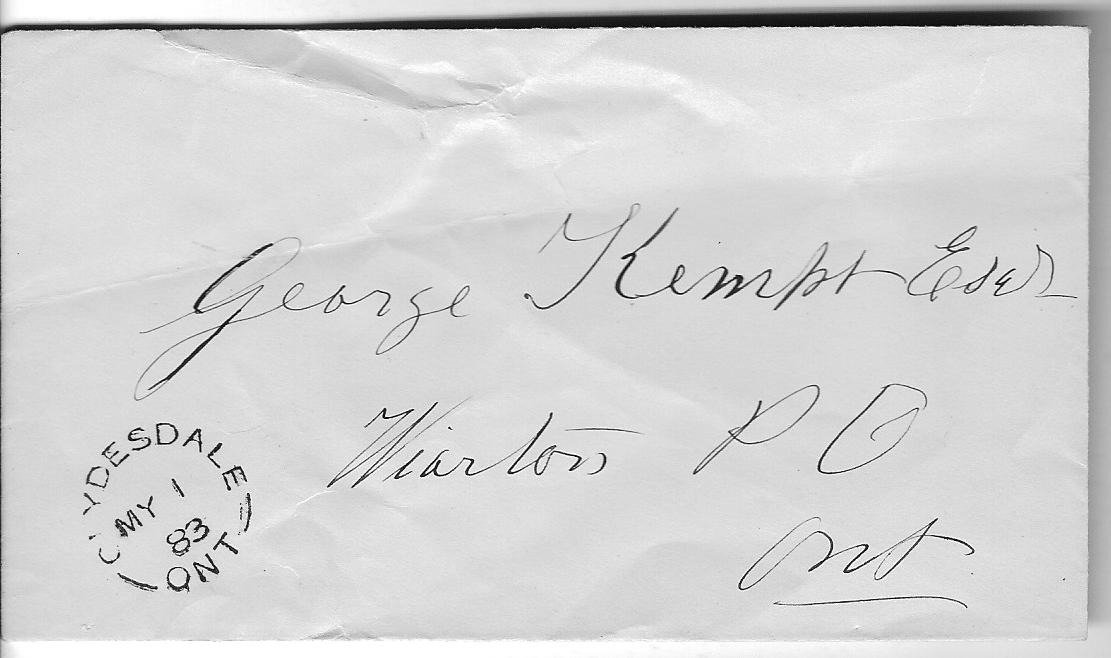 George Kempt Esqr
Wiarton P O
Ont
CLYDESDALE
MY 1
83
ONT